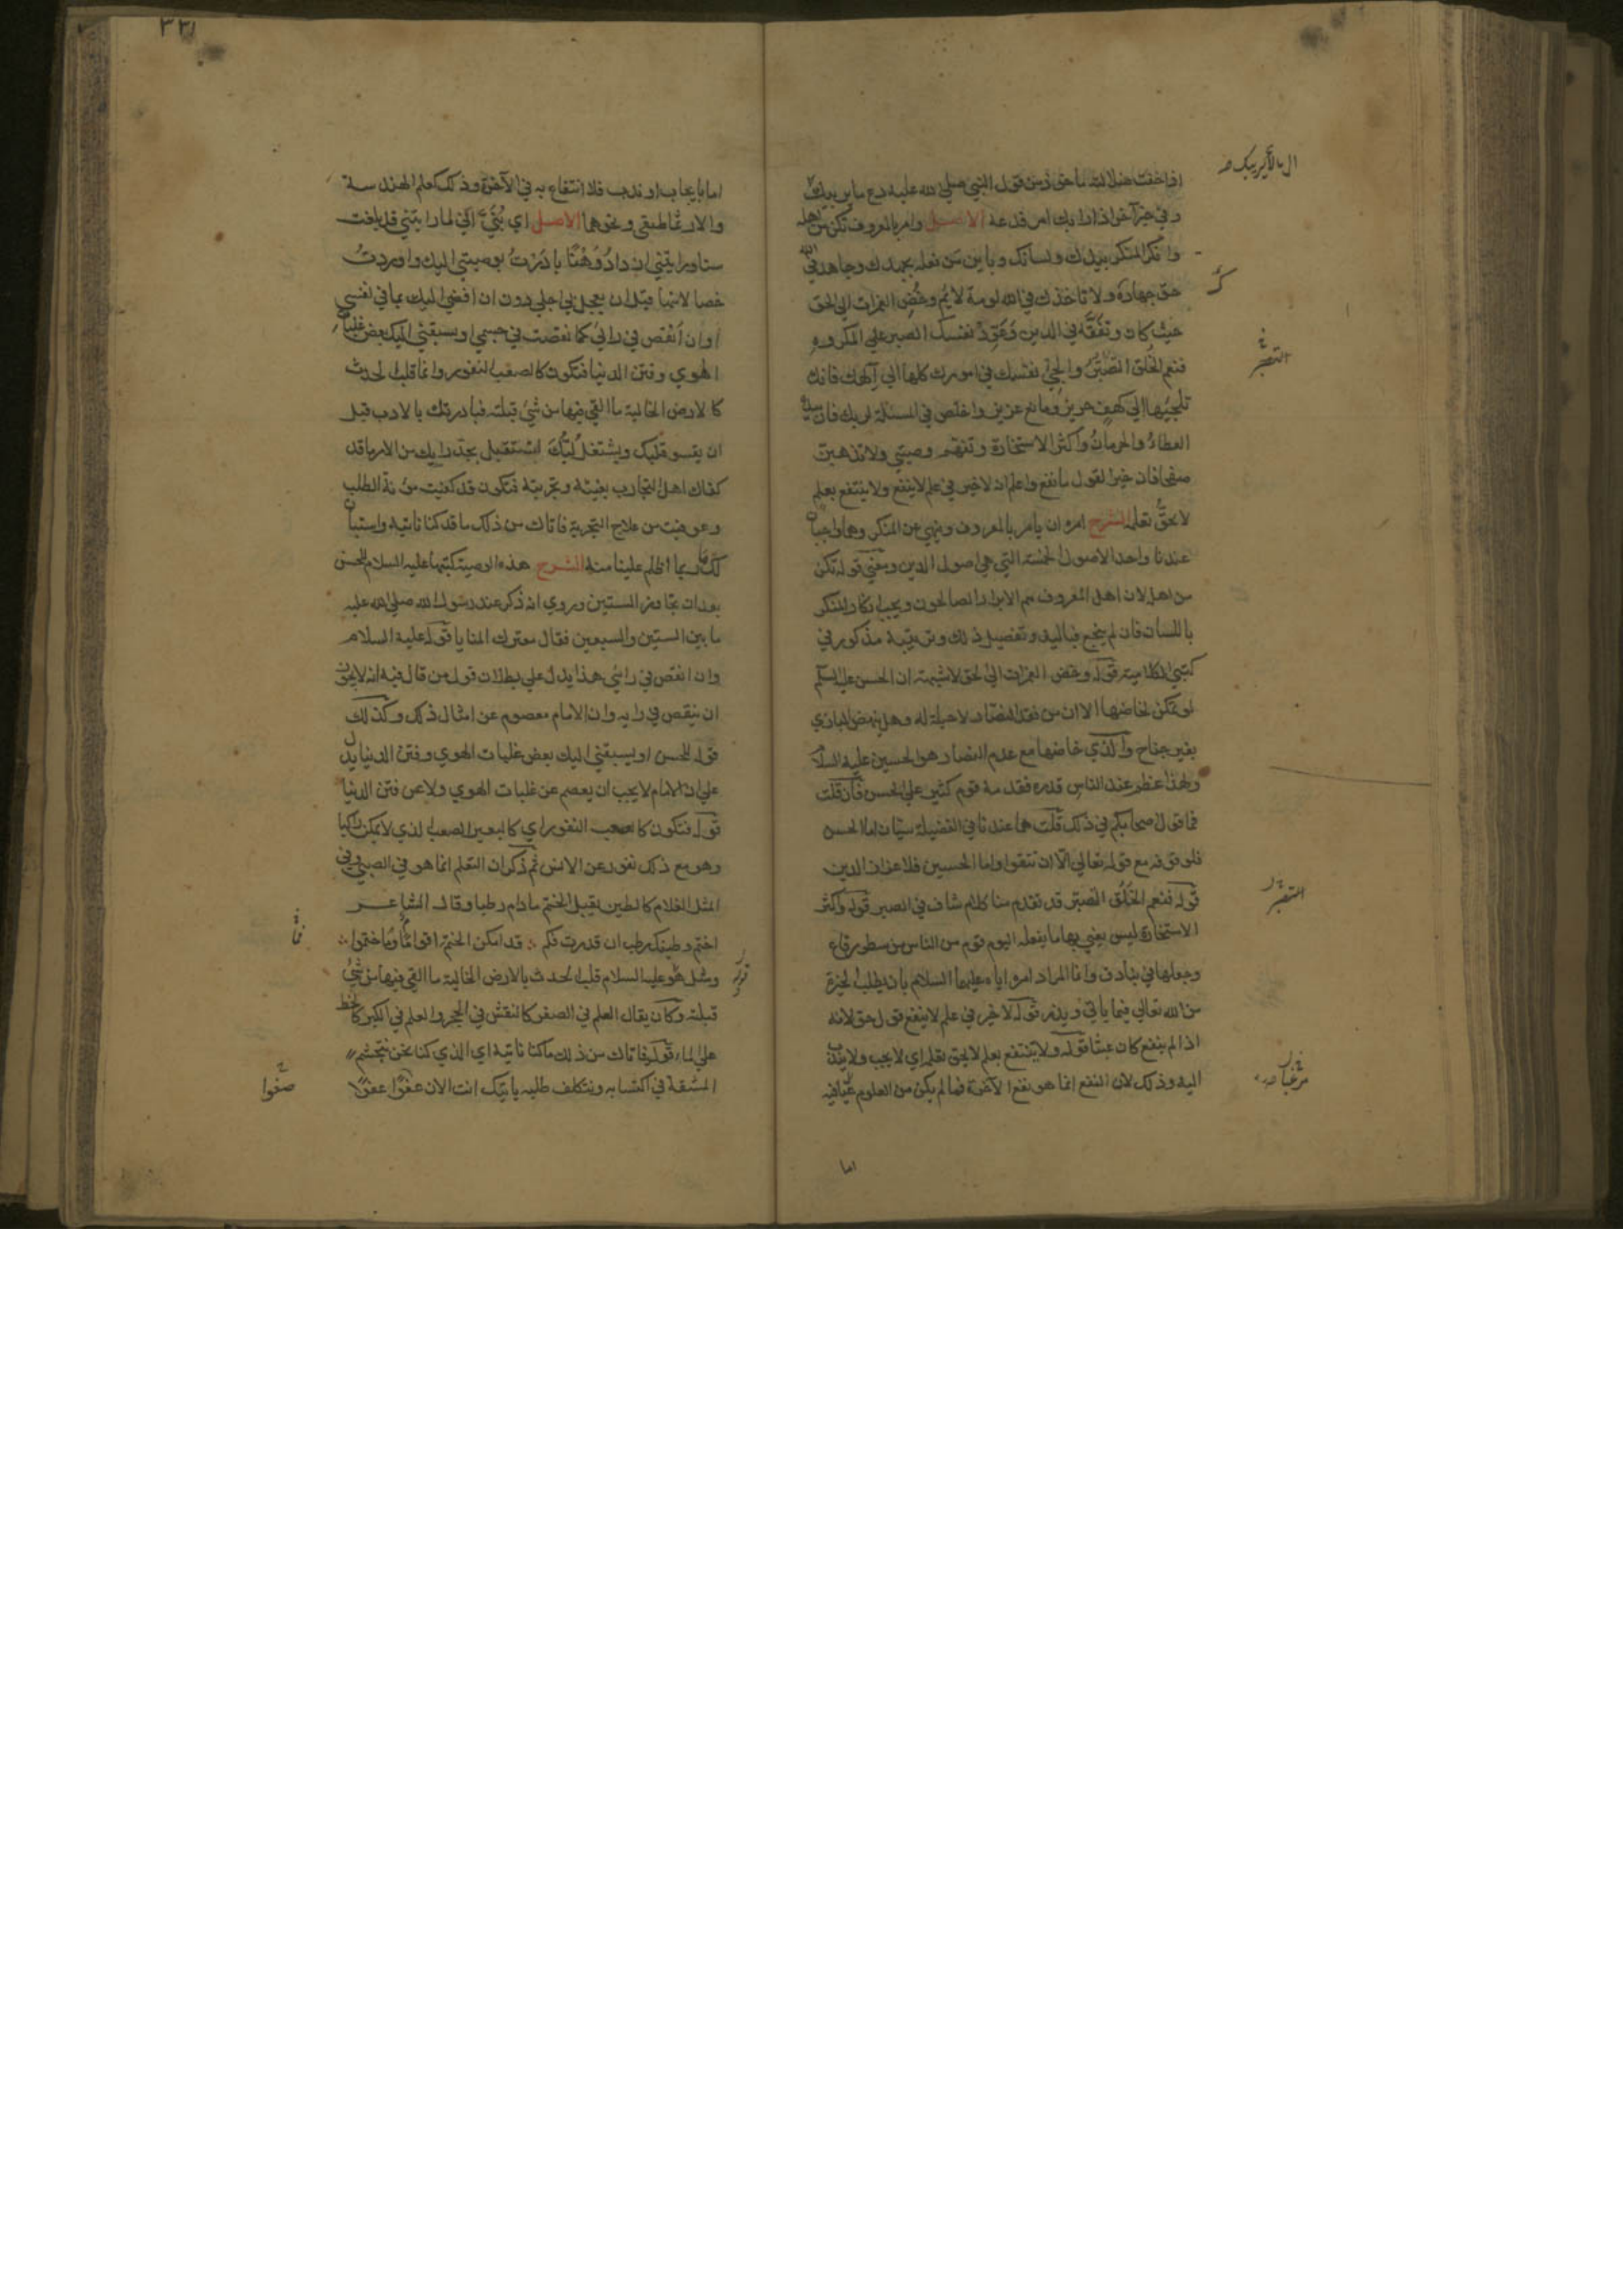 اذا خفت ضلالته ماخوذ من قول النبي صلي الله عليه دع ما يريبك
وفي خبر آخر اذا رابك امر فدعه الاصل وامر بالمعروف تكن من اهله
وانكر المنكر بيدك ولسانك وباين من فعله بجهدك وجاهد في الله
حق جهاده ولا تاخذك في الله لومة لايم وخض الغمرات الي الحق
حيث كان وتفقه في الدين وعود نفسك الصبر علي المكروه
فنعم الخلق التصبر والجئ نفسك في امورك كلها الي آلهك فانك
تلجيها الي كهف حريز ومانع عزيز واخلص في المسئلة لربك فان بيده
العطاء والحرمان واكثر الاستخارة وتفهم وصيتي ولا تذهبن
صفحا فان خير القول ما نفع واعلم انه لا خير في علم لا ينفع ولا ينتفع بعلم
لا يحق تعلمه الشرح امره ان يامر بالمعروف وينهي عن المنكر وهما واجبان
عندنا واحد الاصول الخمسة التي هي اصول الدين ومعني قوله تكن
من اهله لان اهل المعروف هم الابرار الصالحون ويجب انكار المنكر
باللسان فان لم ينجع فباليد وتفصيل ذلك وترتيبه مذكور في
كتبي الكلامية قوله وخض الغمرات الي الحق لا شبهة ان الحسن عليه السلم
لو تمكن لخاضها الا ان من فقد الانصار لا حيلة له وهل ينهض البازي
بغير جناح والذي خاضها مع عدم الانصار هو الحسين عليه السلام
ولهذا عظم عند الناس قدره فقدمه قوم كثير علي الحسن فان قلت
فما قول اصحابكم في ذلك قلت هما عندنا في الفضيلة سيان اما الحسن
فلوقوفه مع قوله تعالي الا ان تتقوا واما الحسين فلاعزاز الدين
قوله فنعم الخلق التصبر قد تقدم منا كلام شاف في الصبر قوله واكثر
الاستخارة ليس يعني بها ما يفعله اليوم قوم من الناس من سطور رقاع
وجعلها في بنادق وانما المراد امره اياه عليهما السلام بان يطلب الخيرة
من الله تعالي فيما ياتي ويذر قوله لا خير في علم لا ينفع قول حق لانه
اذا لم ينفع كان عبثا قوله ولا ينتفع بعلم لا يحق تعلمه اي لا يجب ولا يندب
اليه وذلك لان النفع انما هو نفع الآخرة فما لم يكن من العلوم مرغبا فيه
اما
التصبر
التصبر
مرغبا
٣٣١
اما بايجاب او ندب فلا انتفاع به في الآخرة وذلك كعلم الهندسة
والارثماطيقي ونحوهما الاصل اي بني اني لما رايتني قد بلغت
سنا ورايتني ازداد وهنا بادرت بوصيتي اليك واوردت
خصالا منها قبل ان يعجل بي اجلي دون ان افضي اليك بما في نفسي
او ان انقص في رائي كما نقصت في جسمي او يسبقني اليك بعض غلبات
الهوي وفتن الدنيا فتكون كالصعب النفور وانما قلب الحدث
كالارض الخالية ما القي فيها من شئ قبلته فبادرتك بالادب قبل
ان يقسو قلبك ويشتغل لبك لتستقبل بجد رايك من الامر ما قد
كفاك اهل التجارب بغيته وتجربته فتكون قد كفيت مؤنة الطلب
وعوفيت من علاج التجربة فاتاك من ذلك ما قد كنا ناتيه واستبان
لك ما ربما اظلم علينا منه الشرح هذه الوصية كتبها عليه السلام للحسن
بعد ان تجاوز الستين وروي انه ذكر عند رسول الله صلي الله عليه
ما بين الستين والسبعين فقال معترك المنايا قوله عليه السلام
وان انقص في رائي هذا يدل علي بطلان قول من قال فيه انه لا يجوز
ان ينقص في رايه وان الامام معصوم عن امثال ذلك وكذلك
قوله للحسن او يسبقني اليك بعض غلبات الهوي وفتن الدنيا يدل
علي ان الامام لا يجب ان يعصم عن غلبات الهوي ولا عن فتن الدنيا
قوله فتكون كالصعب النفور اي كالبعير الصعب الذي لا يمكن راكبا
وهو مع ذلك نفور عن الانس ثم ذكر ان التعلم انما هو في الصبي وفي
المثل الغلام كالطين يقبل الختم ما دام رطبا وقال الشاعر
اختم وطينك رطب ان قدرت فكم ∴ قد امكن الختم اقواما فما ختموا ∴
ومثل هو عليه السلام قلب الحدث بالارض الخالية ما القي فيها من شئ
قبلته وكان يقال العلم في الصغر كالنقش في الحجر والعلم في الكبر كالخط
علي الماء قوله فاتاك من ذلك ما كنا ناتيه اي الذي كنا نحن نتجشم
المشقة في اكتسابه ونتكلف طلبه ياتيك انت الان عفوا
فما
صفوا